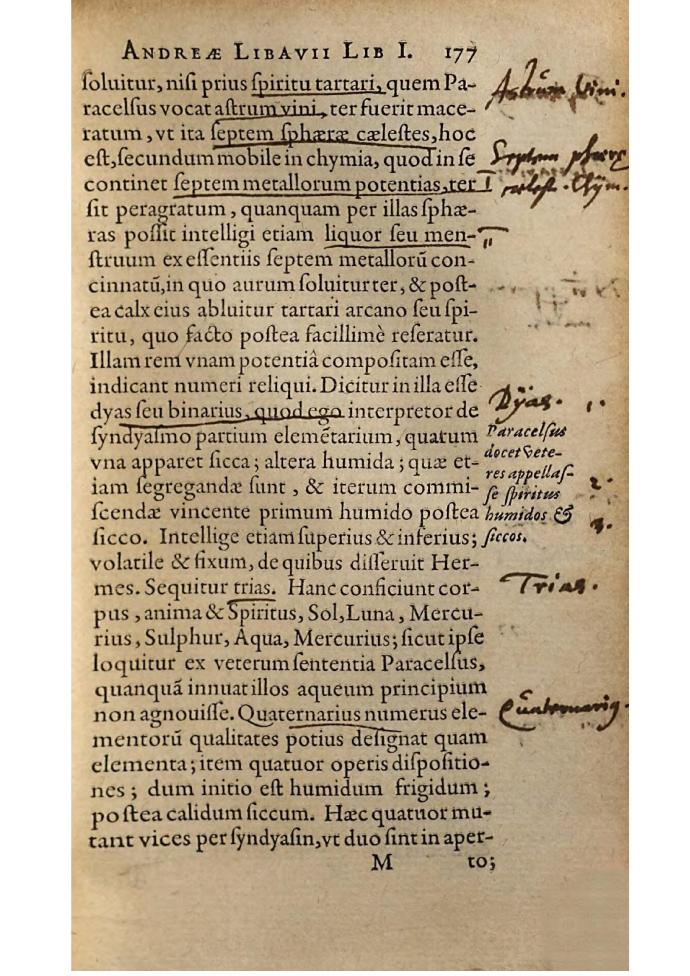 ANDREÆ LIBAVII LIB I. 177
ſoluitur, niſi prius ſpiritu tartari, quem Pa-
racelſus vocat aſtrum vini, ter fuerit mace-
ratum, vt ita ſeptem ſphæræ cæleſtes, hoc
eſt, ſecundum mobile in chymia, quod in ſe
continet ſeptem metallorum potentias, ter
ſit peragratum, quanquam per illas ſphæ-
ras poſſit intelligi etiam liquor ſeu men-
ſtruum ex eſſentiis ſeptem metallorū con-
cinnatū, in quo aurum ſoluitur ter, & poſt-
ea calx eius abluitur tartari arcano ſeu ſpi-
ritu, quo facto poſtea facillimè reſeratur.
Illam rem vnam potentiâ compoſitam eſſe,
indicant numeri reliqui. Dicitur in illa eſſe
dyas ſeu binarius, quod ego interpretor de
ſyndyaſmo partium elemētarium, quatum
vna apparet ſicca; altera humida; quæ et-
iam ſegregandæ ſunt, & iterum commi-
ſcendæ vincente primum humido poſtea
ſicco. Intellige etiam ſuperius & inferius;
volatile & fixum, de quibus diſſeruit Her-
mes. Sequitur trias. Hanc conficiunt cor-
pus, anima & Spiritus, Sol, Luna, Mercu-
rius, Sulphur, Aqua, Mercurius; ſicut ipſe
loquitur ex veterum ſententia Paracelſus,
quanquā innuat illos aqueum principium
non agnouiſſe. Quaternarius numerus ele-
mentorū qualitates potius deſignat quam
elementa; item quatuor operis diſpoſitio-
nes; dum initio eſt humidum frigidum;
poſtea calidum ſiccum. Hæc quatuor mu-
tant vices per ſyndyaſin, vt duo ſint in aper-
M to;
Astrum Vini.
Septem phæræ
cælest. Chÿm.
Dÿas. 1.
Paracelſus
docet vete-
res appellaſ-
ſe ſpiritus
humidos &
ſiccos.
2.
3.
Trias.
Quaternarius.